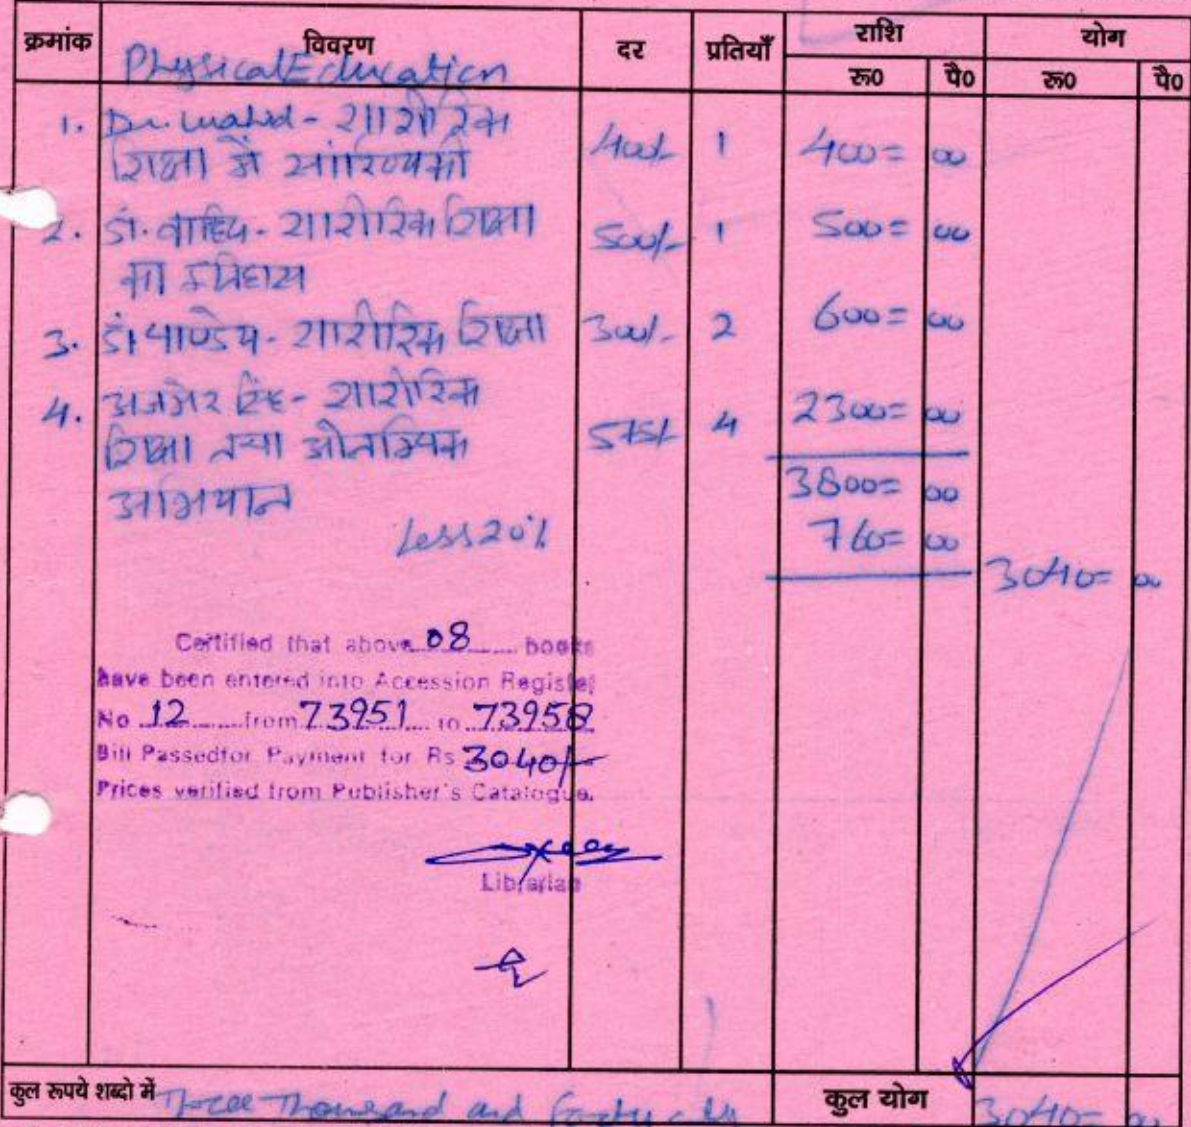 क्रमांक विवरण दर प्रतियाँ राशि योग
रू0 पै0 रू0 पै0
Physical Education
1. Dr. Wahid - शारीरिक 400/- 1 400= 00
शिक्षा में सांख्यिकी
2. डॉ. वाहिद - शारीरिक शिक्षा 500/- 1 500= 00
का इतिहास
3. डॉ पाण्डेय - शारीरिक शिक्षा 300/- 2 600= 00
4. अजमेर सिंह - शारीरिक 575/- 4 2300= 00
शिक्षा तथा ओलम्पिक
अभियान 3800= 00
Less 20% 760= 00
3040= 00
Certified that above 08 books
have been entered into Accession Register
No 12 from 73951 to 73958
Bill Passed for Payment for Rs 3040/-
Prices verified from Publisher's Catalogue.
Librarian
कुल रूपये शब्दो में Three Thousand and Forty कुल योग 3040= 00